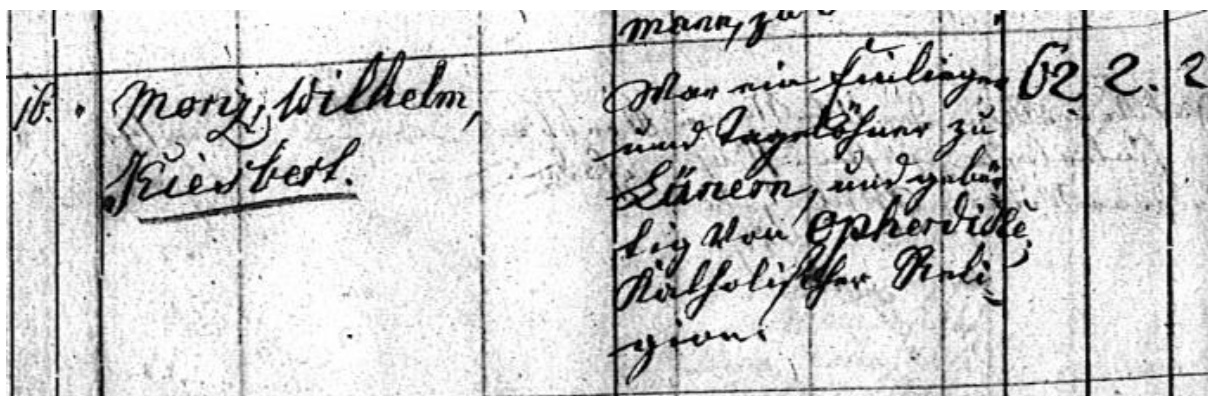 mann, zu
16. Moriz, Wilhelm,
Kiesbert.
War ein Einlieger 62 2. 2
und Tagelöhner zu
Lünern, und gebür-
tig von Opherdicke,
Katholischer Reli-
gion.